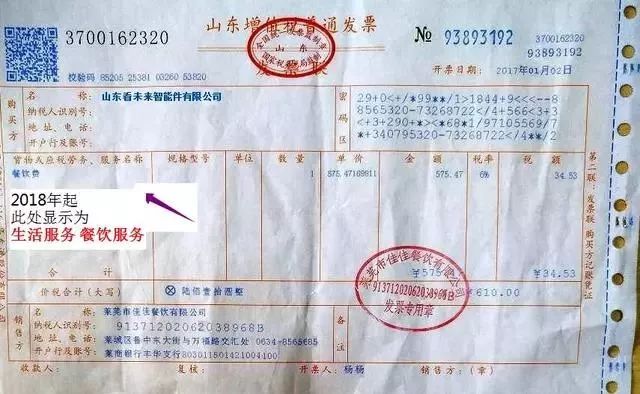 3700162320
山东增值税普通发票
No 93893192
3700162320
93893192
校验码 85205 25381 03260 53820
开票日期：2017年01月02日
全国统一发票监制章
山东
国家税务局监制
购买方
名称：山东看未来智能件有限公司
纳税人识别号：
地址、电话：
开户行及账号：
密码区
29+0<+/*99**/1>1844+9<<<--8
8565320-73268722/4+566<3+3
<3+290+*><*68*1/97105569/7
*+340795320-73268722/4**/2
货物或应税劳务、服务名称 规格型号 单位 数量 单价 金额 税率 税额
餐饮费 1 575.47169811 575.47 6% 34.53
2018年起
此处显示为
生活服务 餐饮服务
合计 ¥575.47 ¥34.53
价税合计（大写） ⊗陆佰壹拾圆整 ¥610.00
销售方
名称：莱芜市佳佳餐饮有限公司
纳税人识别号：91371202062038968B
地址、电话：莱城区鲁中东大街与万福路交汇处 0634-8565685
开户行及账号：莱商银行丰华支行803011501421004100
备注
莱芜市佳佳餐饮有限公司
91371202062038968B
发票专用章
收款人： 复核： 开票人：杨杨 销售方：（章）
第二联：发票联 购买方记账凭证